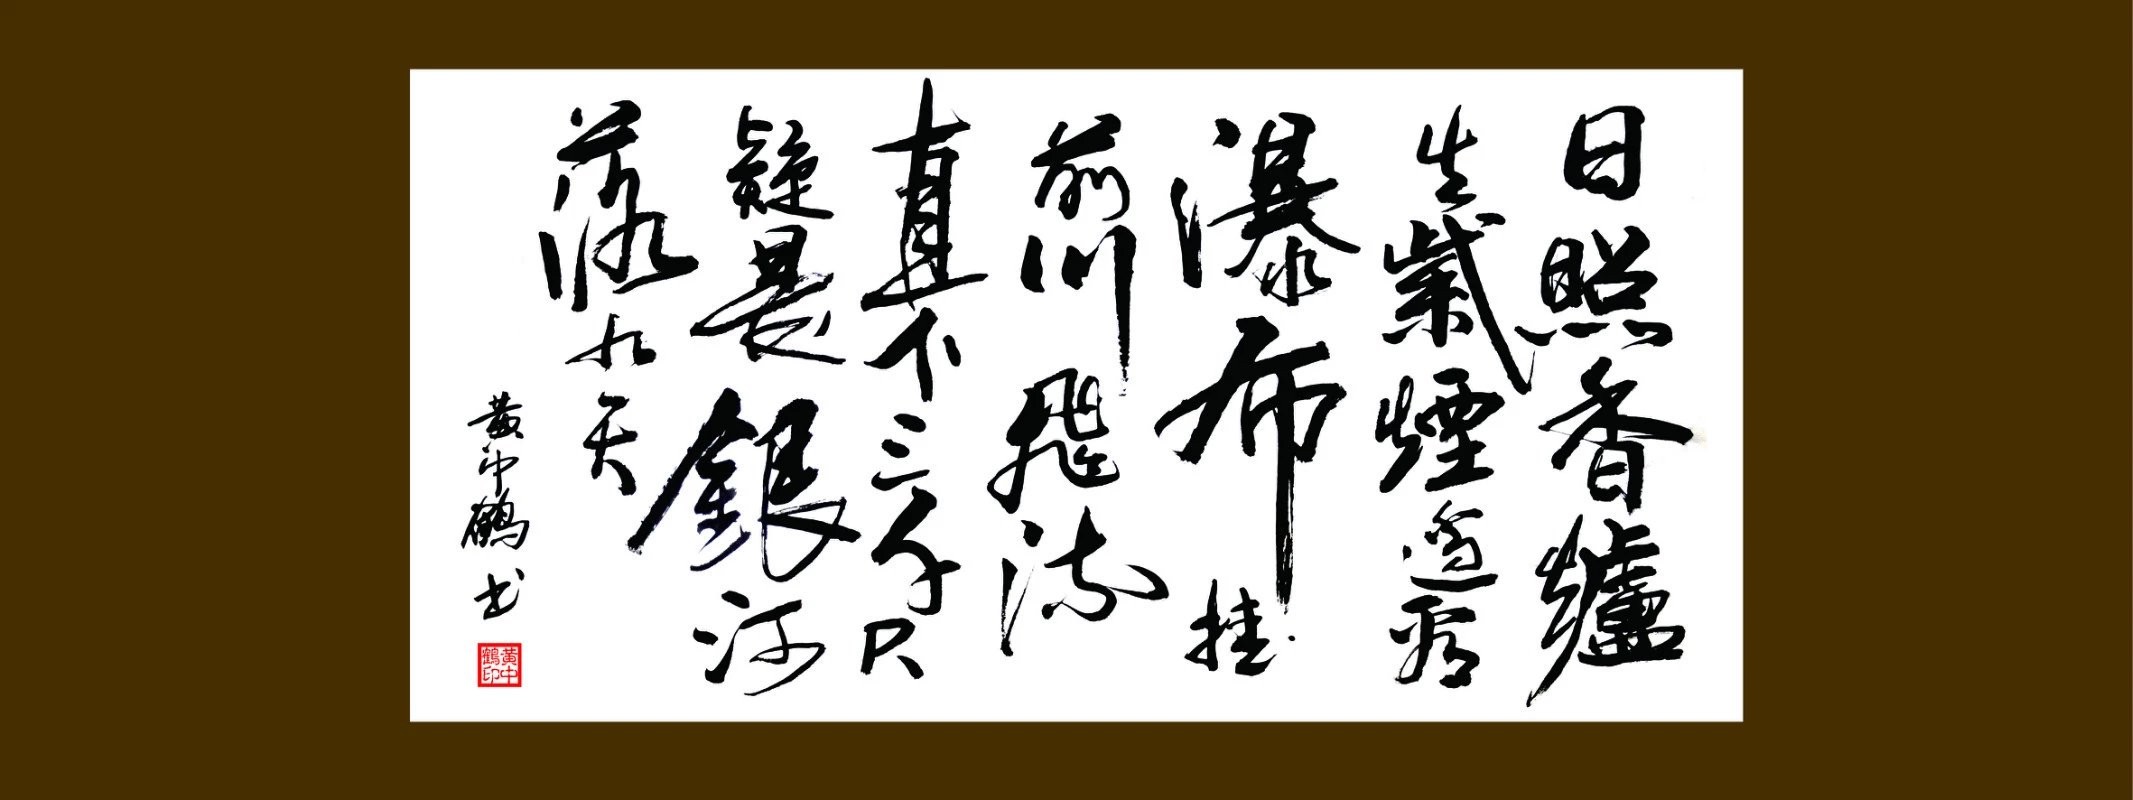 日照香爐
生紫煙遥看
瀑布挂
前川飛流
直下三千尺
疑是銀河
落九天
黄中鶴书
黄中鶴印